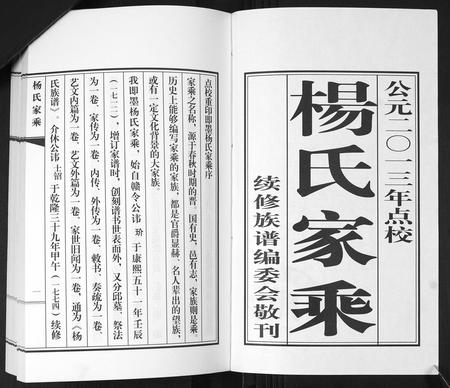 公元二〇一三年点校
楊氏家乘
续修族谱编委会敬刊
点校重印即墨杨氏家乘序
家乘之名称，源于春秋时期的晋。国有史，邑有志，家族则是乘。
历史上能够编写家乘的家族，都是官爵显赫，名人辈出的望族，
或有一定文化背景的大家族。
我即墨杨氏家乘，始自赣令公讳玠于康熙五十一年壬辰
（一七一二），增订家谱时，创刻谱书世表而外，又分邱墓、祭法
为一卷、家传为一卷，内传、外传为一卷，敕书、奏疏为一卷、
艺文内篇为一卷、艺文外篇为一卷、家世旧闻为一卷，通为《杨
氏族谱》。介休公讳士沼于乾隆三十九年甲午（一七七四）续修
杨氏家乘
一